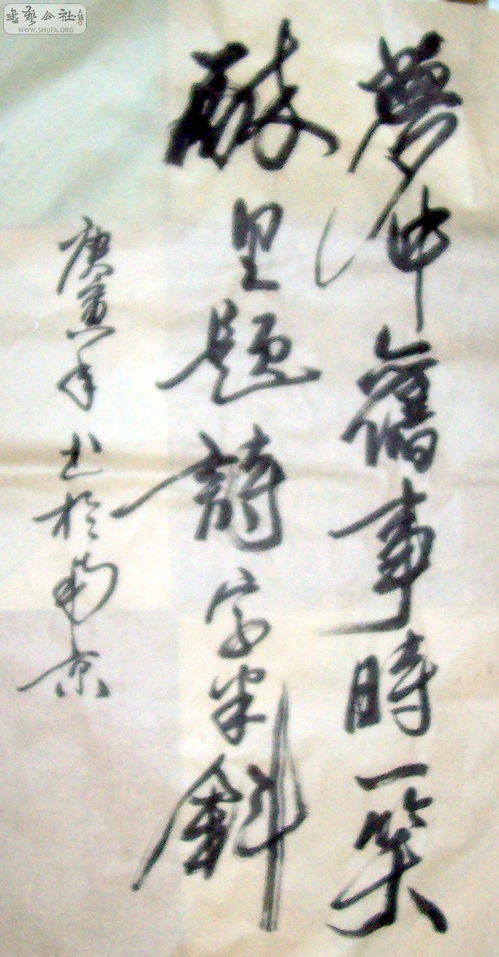 夢中舊事時一笑
醉里題詩字半斜
庚寅年书於南京
書藝公社
WWW.SHUFA.ORG